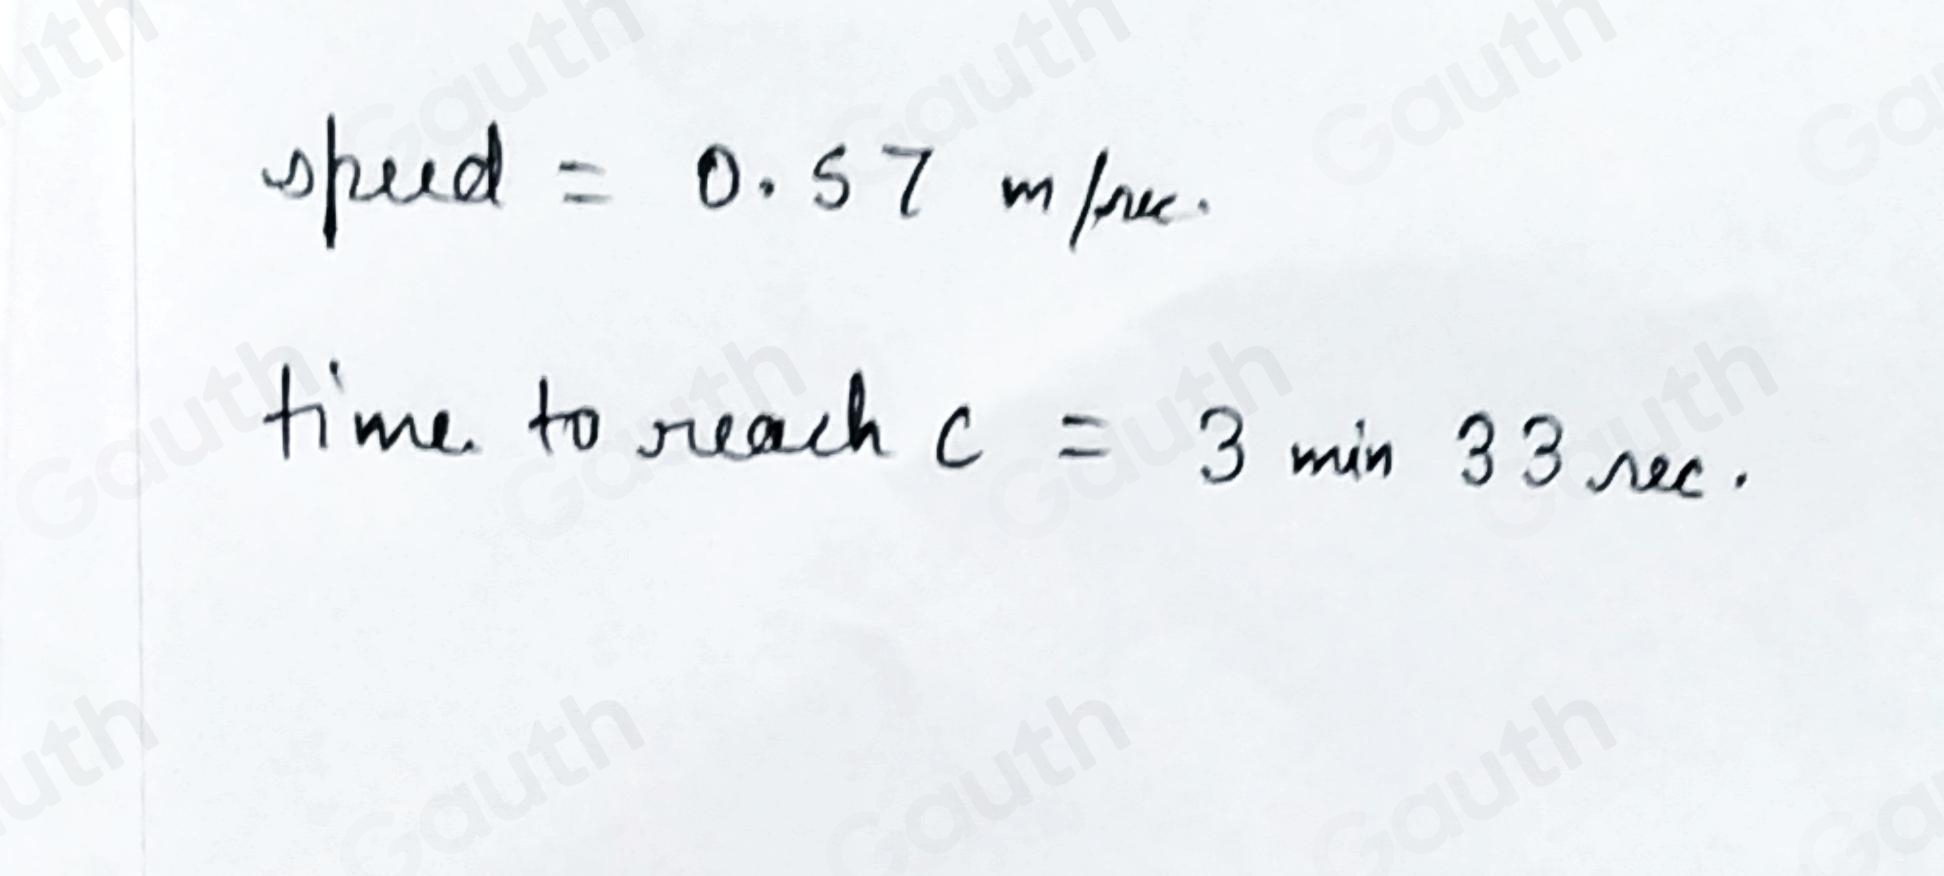 speed = 0.57 m/sec.
time to reach c = 3 min 33 sec.